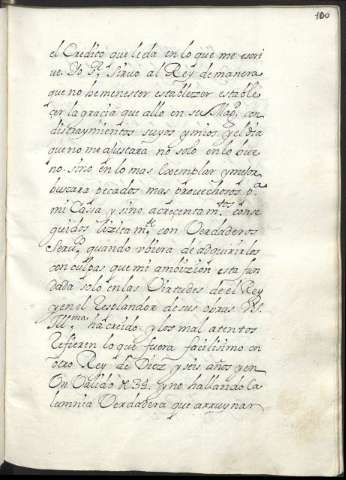 100
el Credito que le da en lo que me escri
ue. Yo Sr. siruo al Rey de manera
que no he menester establezer estable
çer la gracia que allo en su Magd. con
distraymientos suyos y mios y el dia
que no me ajustara no solo en lo bue
no sino en lo mas Exemplar y mejor
buscara pecados mas prouechosos pa.
mi Cassa y sino acreçentamtos. conse
guidos lizitamte. con Verdaderos
Seruos. quando vbiera de adquirirlos
con culpas que mi ambizion esta fun
dada solo en las Virtudes de el Rey
y en el Resplandor de sus obras VS.
Illma. ha creido y los mal atentos
Refieren lo que fuera facilisimo en
otro Rey de Diez y seis años y en
Vn Valido de 34. y no hallando la
lumnia Verdadera que arruynar